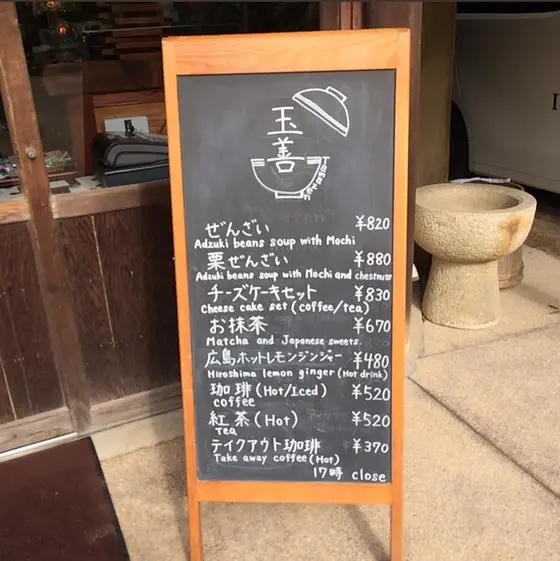 玉善
ぜんざい ¥820
Adzuki beans soup with Mochi
栗ぜんざい ¥880
Adzuki beans soup with Mochi and chestnuts
チーズケーキセット ¥830
Cheese cake set (coffee/tea)
お抹茶 ¥670
Matcha and Japanese sweets.
広島ホットレモンジンジャー ¥480
Hiroshima lemon ginger (Hot drink)
珈琲 (Hot/Iced) ¥520
coffee
紅茶 (Hot) ¥520
Tea
テイクアウト珈琲 ¥370
Take away coffee (Hot)
17時 close